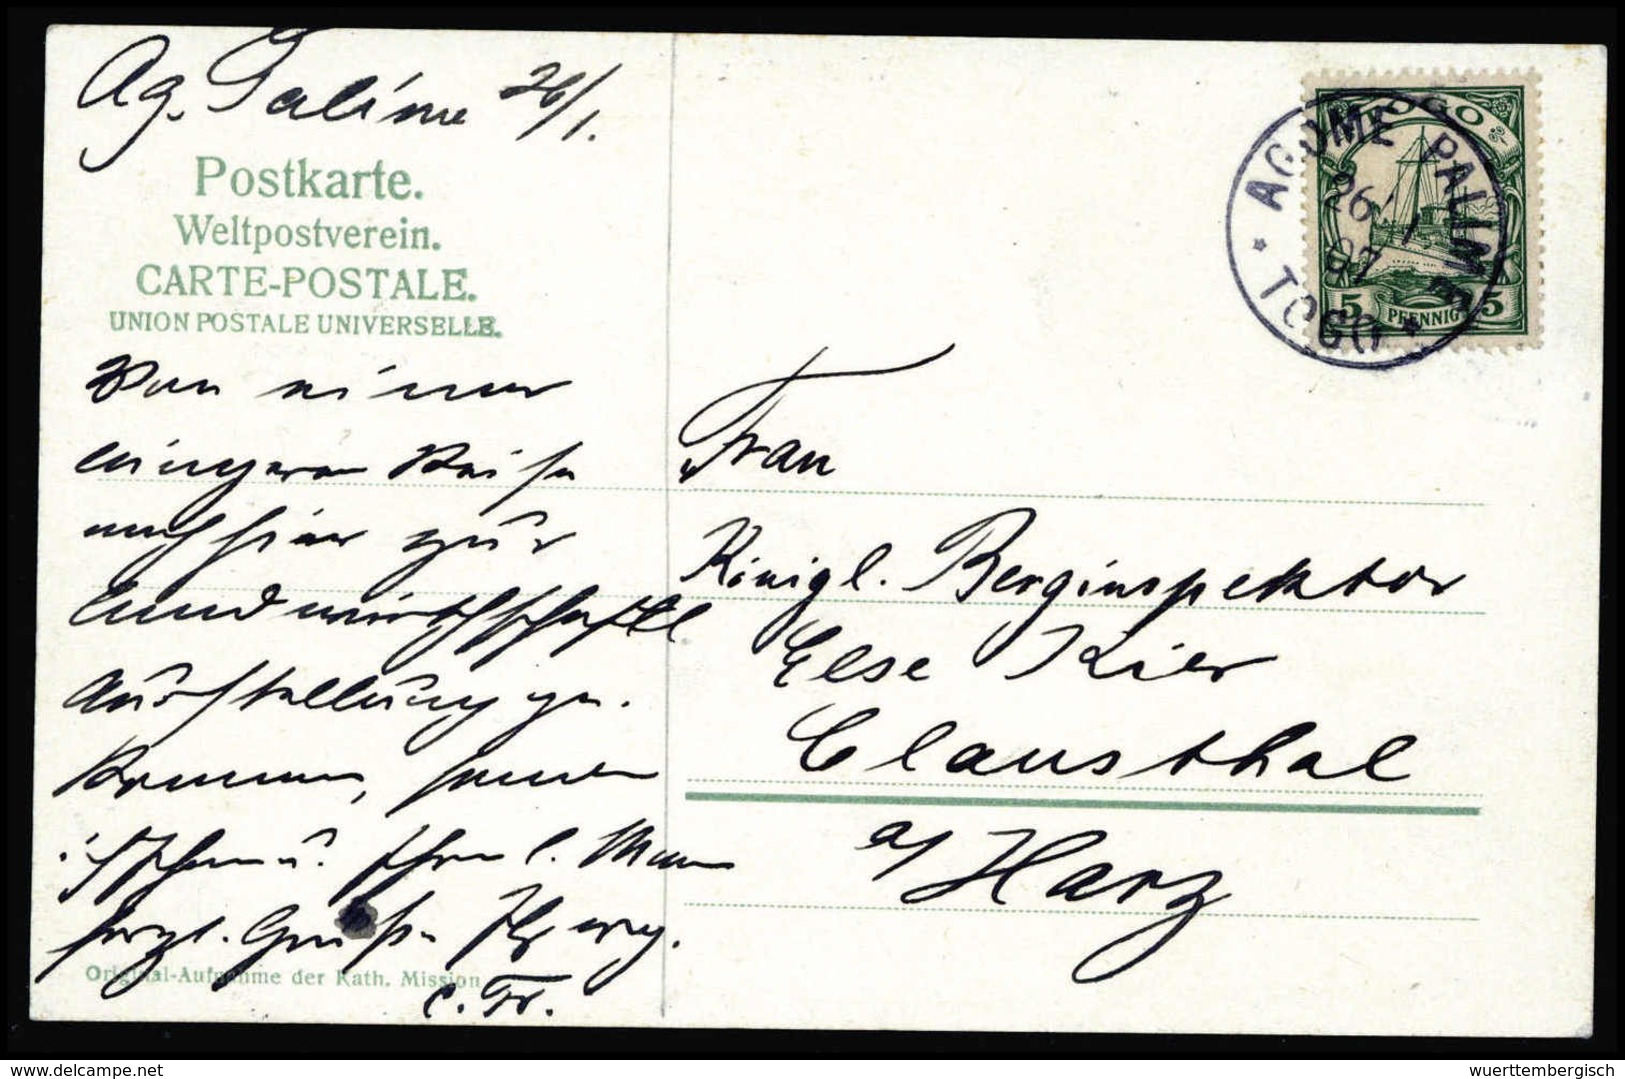 Ag. Palime 26/1.
Postkarte.
Weltpostverein.
CARTE-POSTALE.
UNION POSTALE UNIVERSELLE.
Von einer
längeren Reise
auch hier zur
landwirthschaftl
Ausstellung ge.
kommen, sende
ich Ihnen u. Ihrem l. Mann
herzl. Grüße. Ihr erg.
C. Fr.
Original-Aufnahme der Kath. Mission
TOGO
5 PFENNIG 5
AGOME PALIME
26/1
07
* TOGO *
Frau
Königl. Berginspektor
Else Kier
Clausthal
a/Harz
Delcampe.net
wuerttembergisch